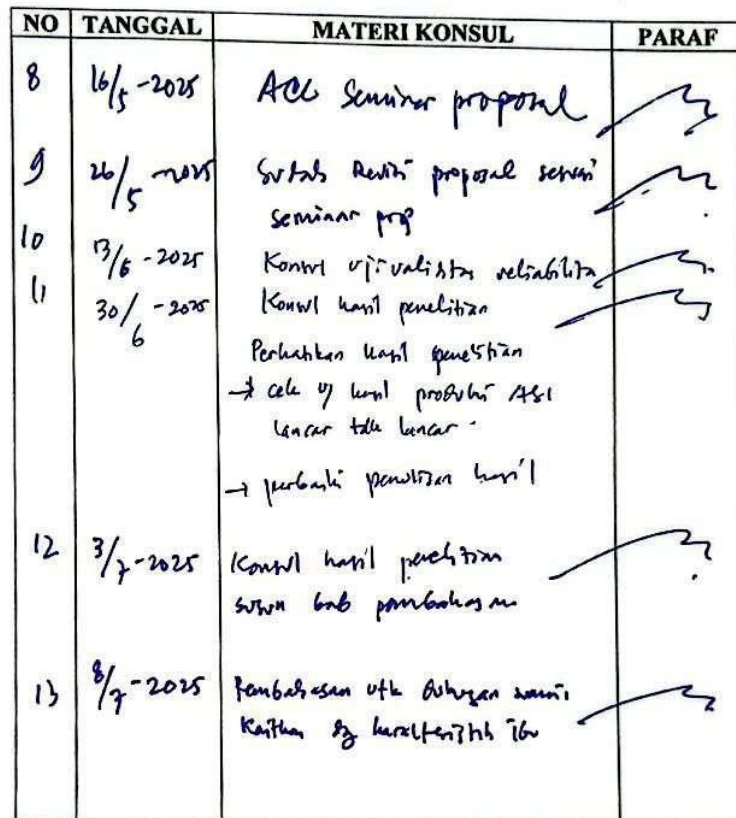 NO TANGGAL MATERI KONSUL PARAF
8 16/5-2025 ACC Seminar proposal
9 26/5-2025 Sudah Revisi proposal sesuai
seminar prop
10 13/6-2025 Konsul uji validitas reliabilita
11 30/6-2025 Konsul hasil penelitian
Perhatikan hasil penelitian
→ cek uj hasil produksi ASI
lancar tdk lancar.
→ perbaiki penulisan hasil
12 3/7-2025 Konsul hasil penelitian
susun bab pembahasan
13 8/7-2025 Pembahasan utk dukungan suami
Kaitkan dg karakteristik ibu